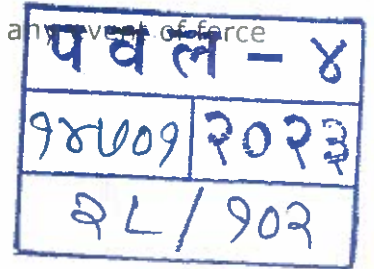 any event of force
पवल - ४
१४७०१ २०२३
२८/१०२